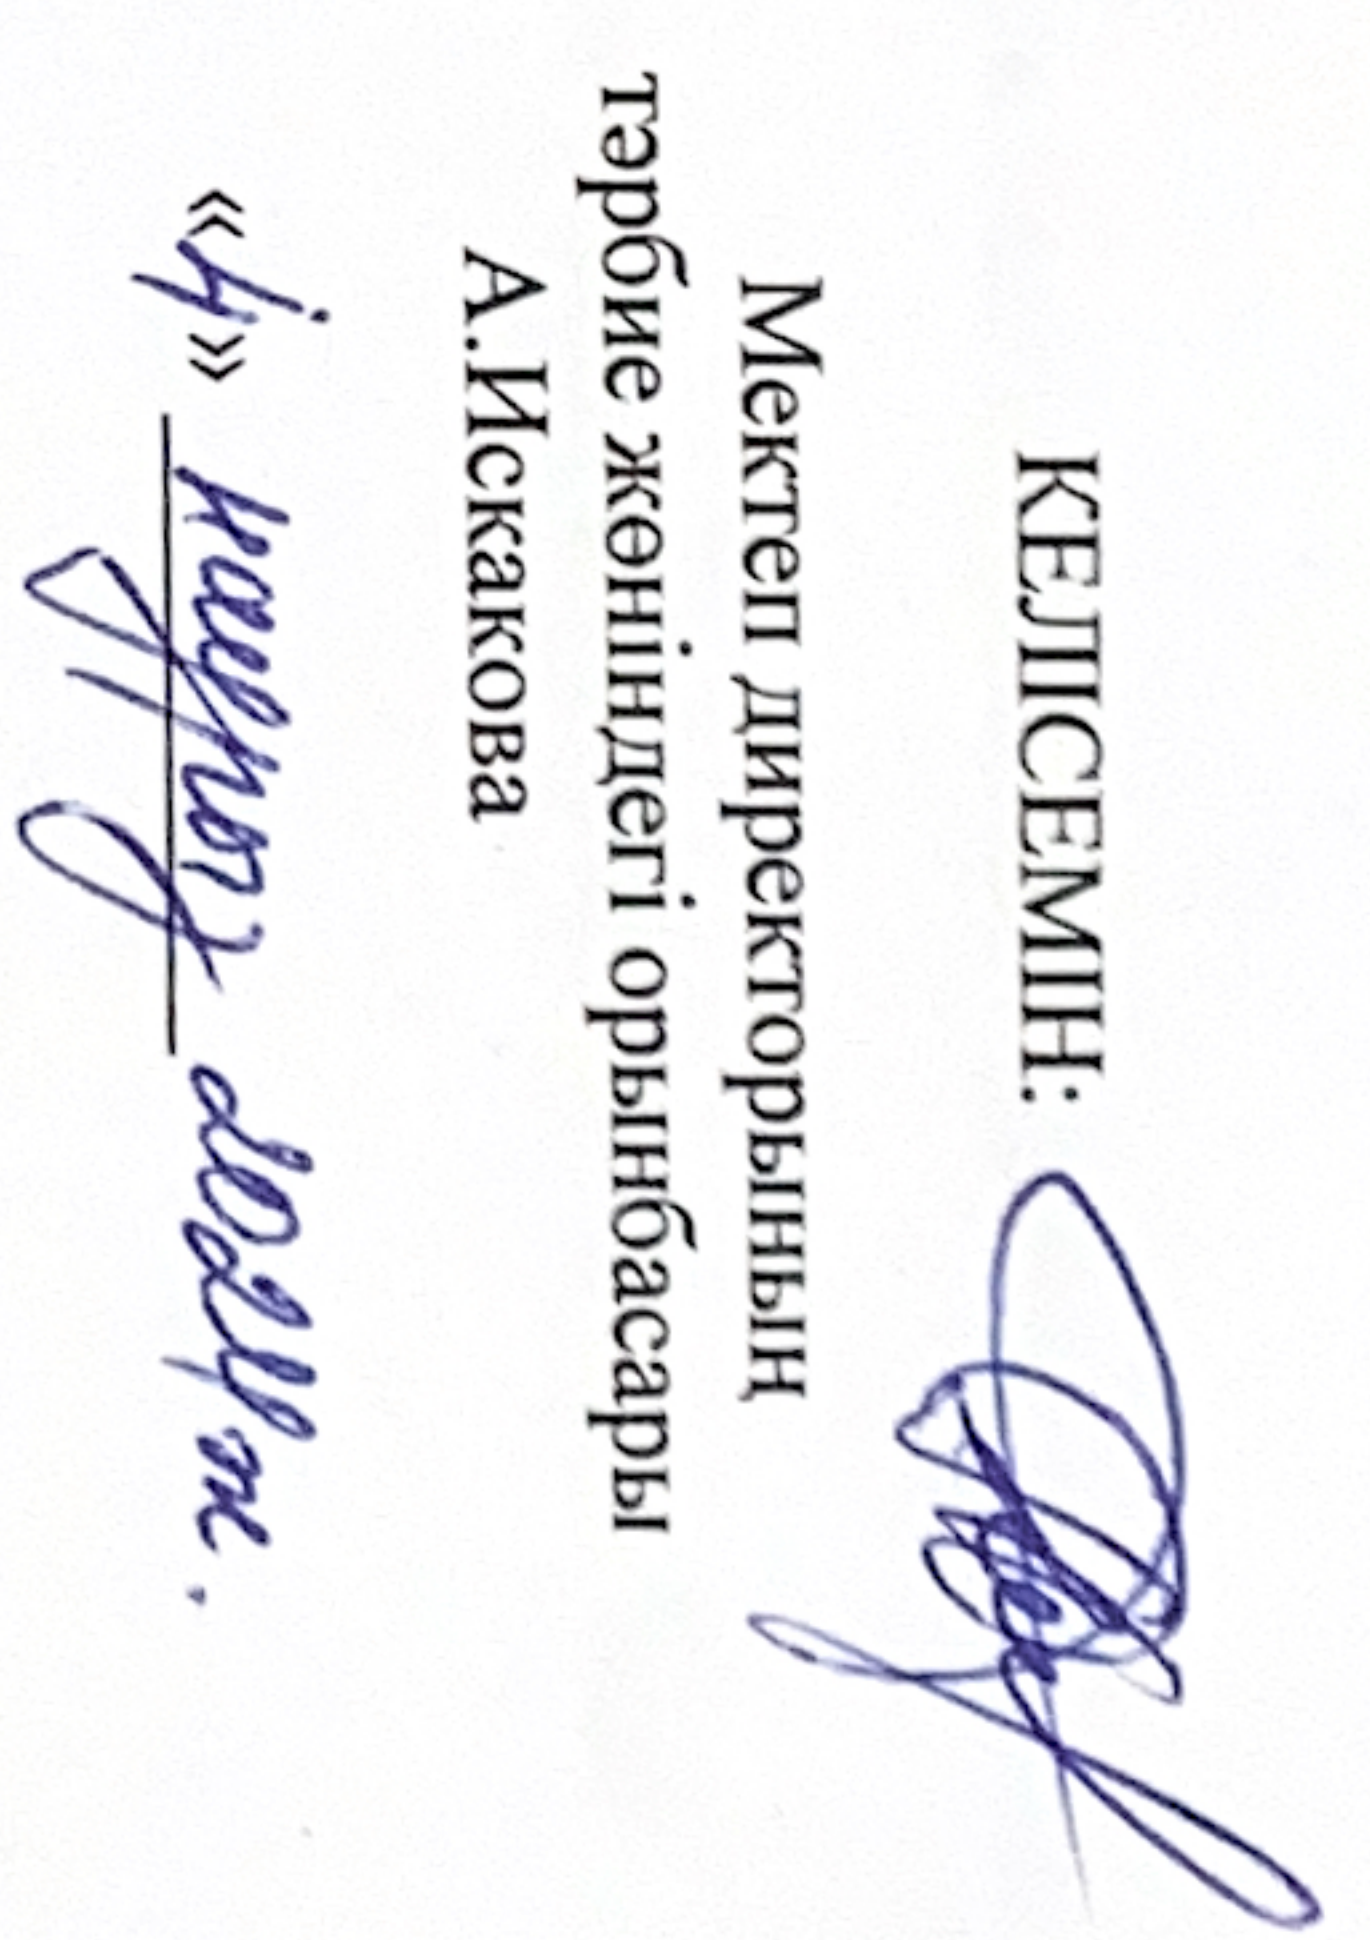 КЕЛІСЕМІН:
Мектеп директорының
тәрбие жөніндегі орынбасары
А.Искакова
«4» наурыз 2024ж.